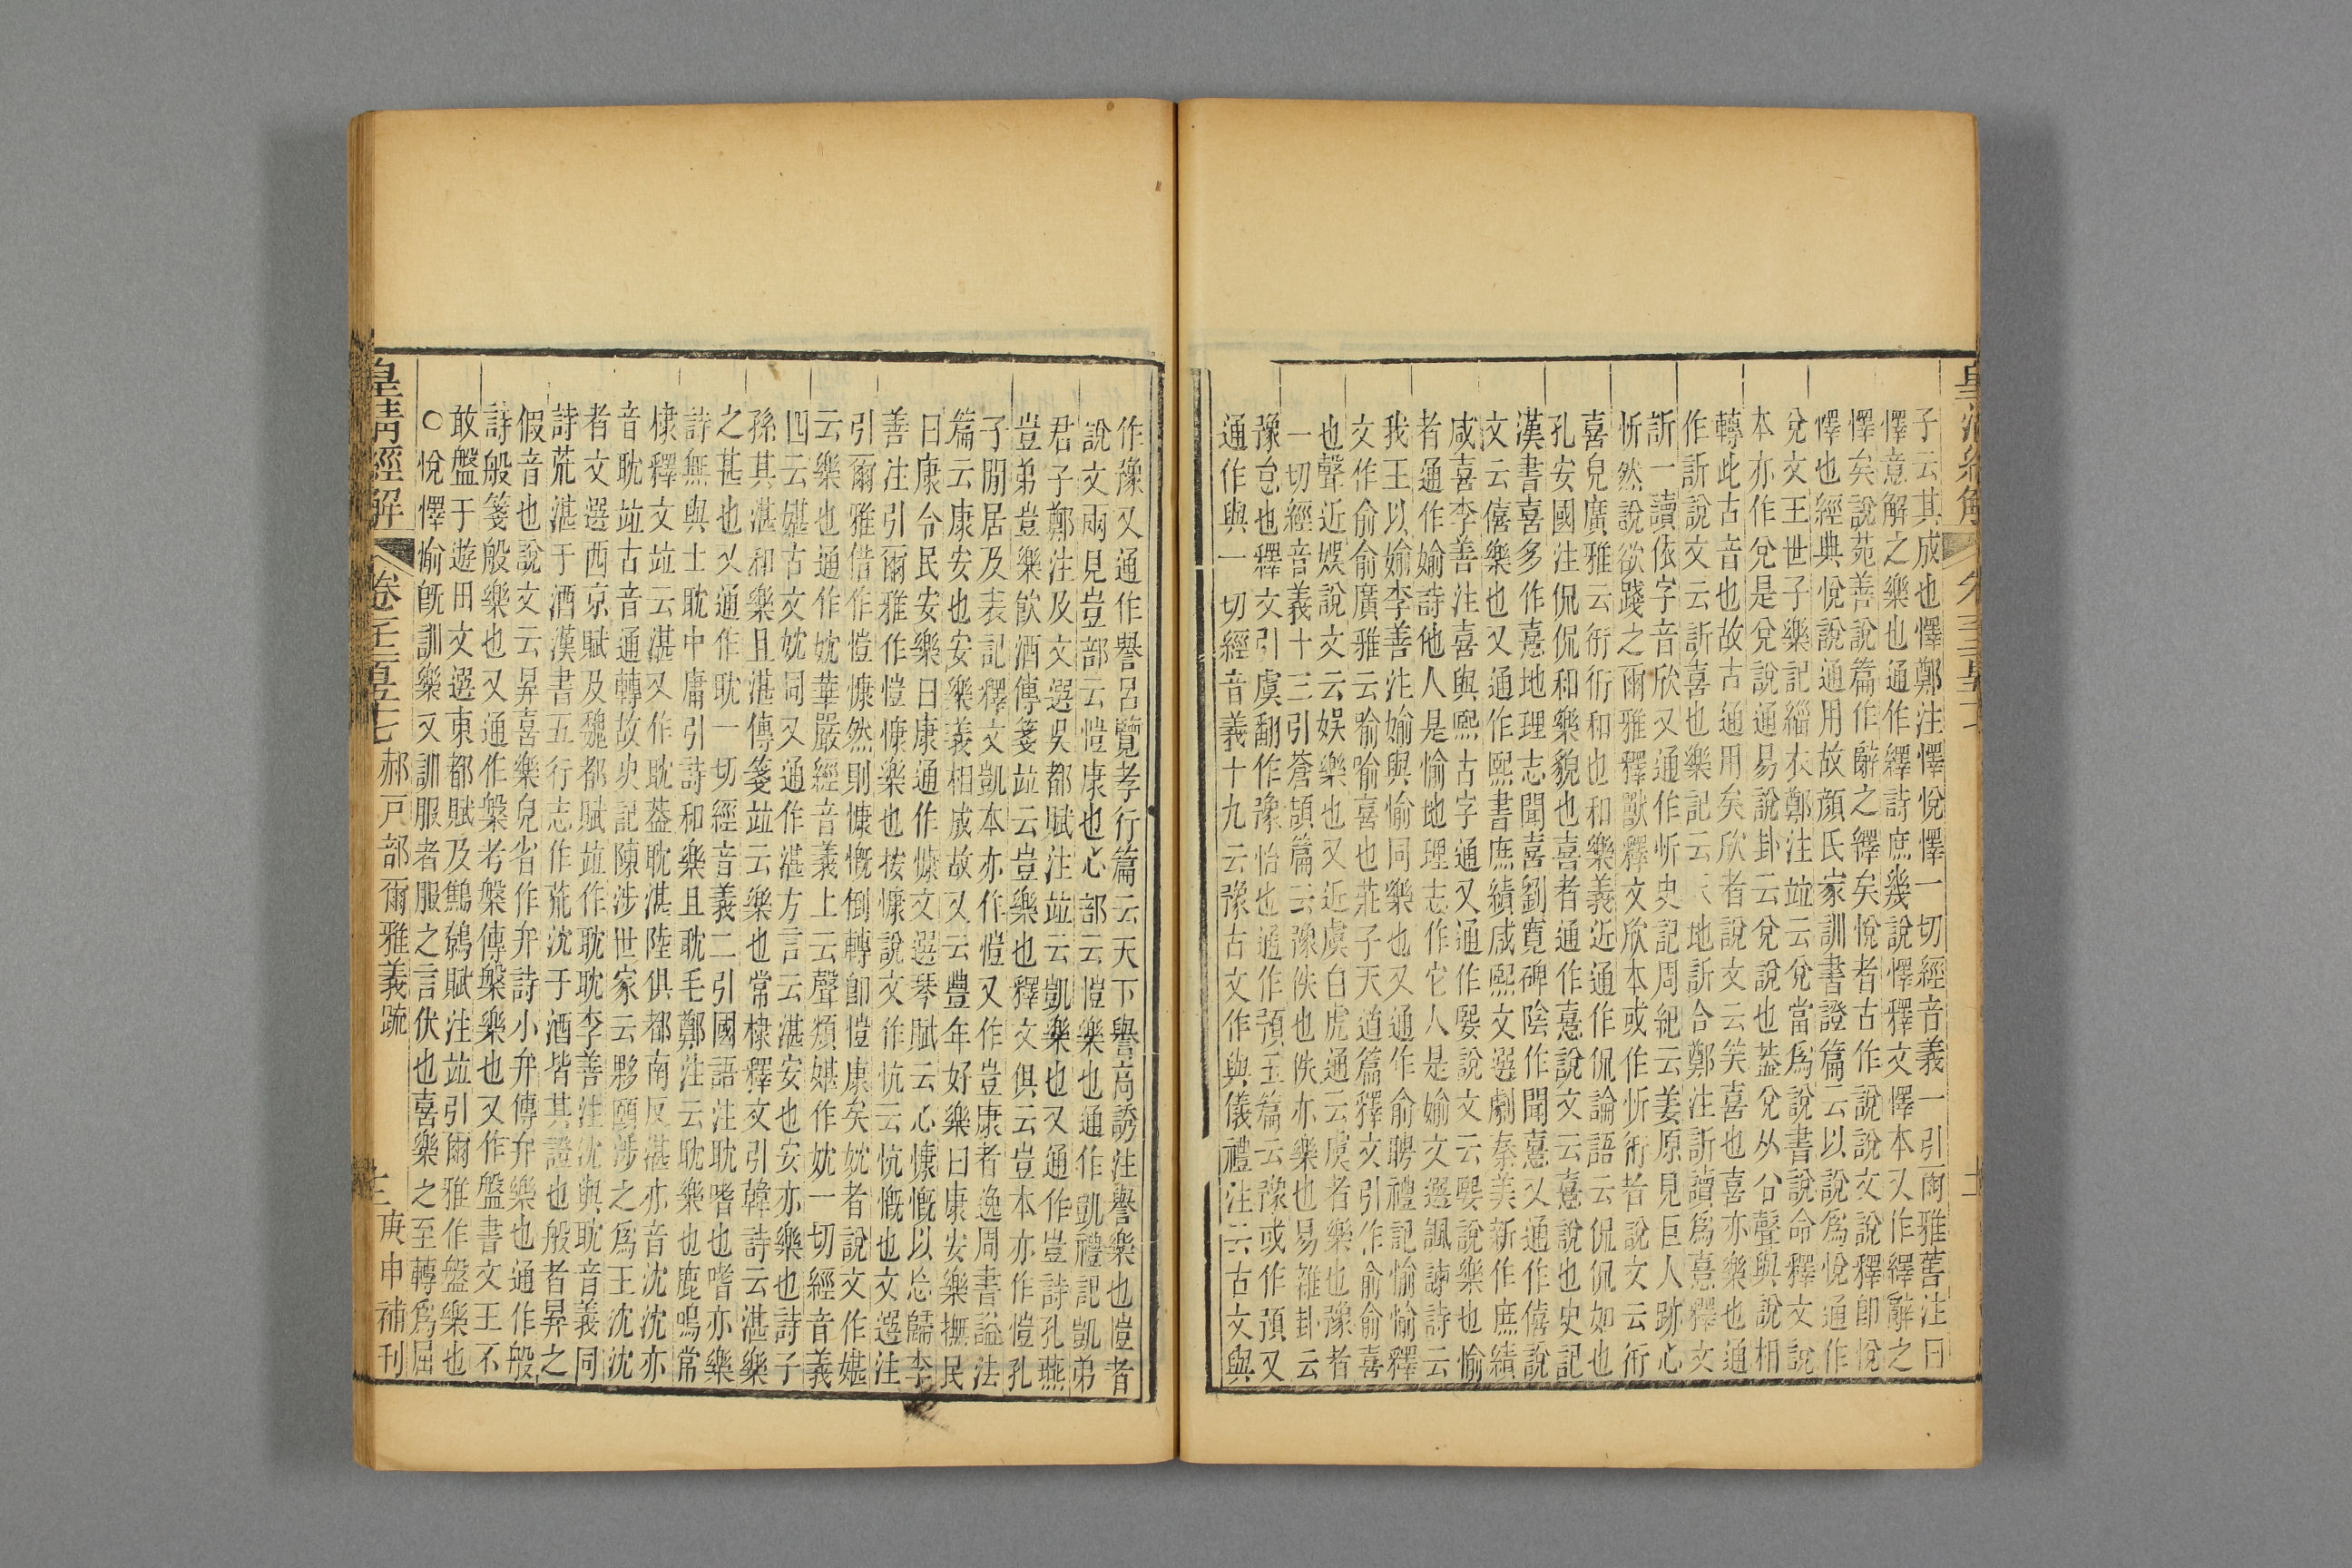 子云其成也懌鄭注懌悅懌一切經音義一引爾雅舊注曰
懌意解之樂也通作繹詩庶幾說懌釋文懌本又作繹辭之
懌矣說苑善說篇作辭之繹矣悅者古作說說文說釋卽悅
懌也經典悅說通用故顏氏家訓書證篇云以說爲悅通作
兌文王世子樂記緇衣鄭注竝云兌當爲說書說命釋文說
本亦作兌是兌說通易說卦云兌說也葢兌从㕣聲與說相
轉此古音也故古通用矣欣者說文云笑喜也喜亦樂也通
作訢說文云訢喜也樂記云天地訢合鄭注訢讀爲憙釋文
訢一讀依字音欣又通作忻史記周紀云姜原見巨人跡心
忻然說欲踐之爾雅釋獸釋文欣本或作忻衎者說文云衎
喜皃廣雅云衎衎和也和樂義近通作侃論語云侃侃如也
孔安國注侃侃和樂貌也喜者通作憙說文云憙說也史記
漢書喜多作憙地理志聞喜劉寬碑陰作聞憙又通作僖說
文云僖樂也又通作熙書庶績咸熙文選劇秦美新作庶績
咸喜李善注喜與熙古字通又通作娶說文云娶說樂也愉
者通作媮詩他人是愉地理志作它人是媮文選諷諫詩云
我王以媮李善注媮與愉同樂也又通作俞聘禮記愉愉釋
文作俞俞廣雅云喻喻喜也莊子天道篇釋文引作俞俞喜
也聲近娛說文云娛樂也又近虞白虎通云虞者樂也豫者
一切經音義十三引蒼頡篇云豫佚也佚亦樂也易雜卦云
豫怠也釋文引虞翻作豫怡也通作預玉篇云豫或作預又
通作與一切經音義十九云豫古文作與儀禮注云古文與
作豫又通作譽呂覽孝行篇云天下譽高誘注譽樂也愷者
說文兩見豈部云愷康也心部云愷樂也通作凱禮記凱弟
君子鄭注及文選吳都賦注竝云凱樂也又通作豈詩孔燕
豈弟豈樂飮酒傳箋竝云豈樂也釋文俱云豈本亦作愷孔
子閒居及表記釋文凱本亦作愷又作豈康者逸周書諡法
篇云康安也安樂義相成故又云豐年好樂曰康安樂撫民
曰康令民安樂曰康通作慷文選琴賦云心慷慨以忘歸李
善注引爾雅作愷慷樂也按慷說文作忼云忼慨也文選注
引爾雅借作愷慷然則慷慨倒轉卽愷康矣妉者說文作媅
云樂也通作妉華嚴經音義上云聲類媅作妉一切經音義
四云媅古文妉同又通作湛方言云湛安也安亦樂也詩子
孫其湛和樂且湛傳箋竝云樂也常棣釋文引韓詩云湛樂
之甚也又通作耽一切經音義二引國語注耽嗜也嗜亦樂
詩無與士耽中庸引詩和樂且耽毛鄭注云耽樂也鹿鳴常
棣釋文竝云湛又作耽葢耽湛陸俱都南反湛亦音沈沈亦
音耽竝古音通轉故史記陳涉世家云夥頤涉之爲王沈沈
者文選西京賦及魏都賦竝作耽耽李善注沈與耽音義同
詩荒湛于酒漢書五行志作荒沈于酒皆其證也般者昪之
假音也說文云昪喜樂皃省作弁詩小弁傳弁樂也通作般
詩般箋般樂也又通作槃考槃傳槃樂也又作盤書文王不
敢盤于遊田文選東都賦及鷦鷯賦注竝引爾雅作盤樂也
○悅懌愉旣訓樂又訓服者服之言伏也喜樂之至轉爲屈
皇淸經解 卷一千二百五十七 郝戸部爾雅義疏 十二 庚申補刊